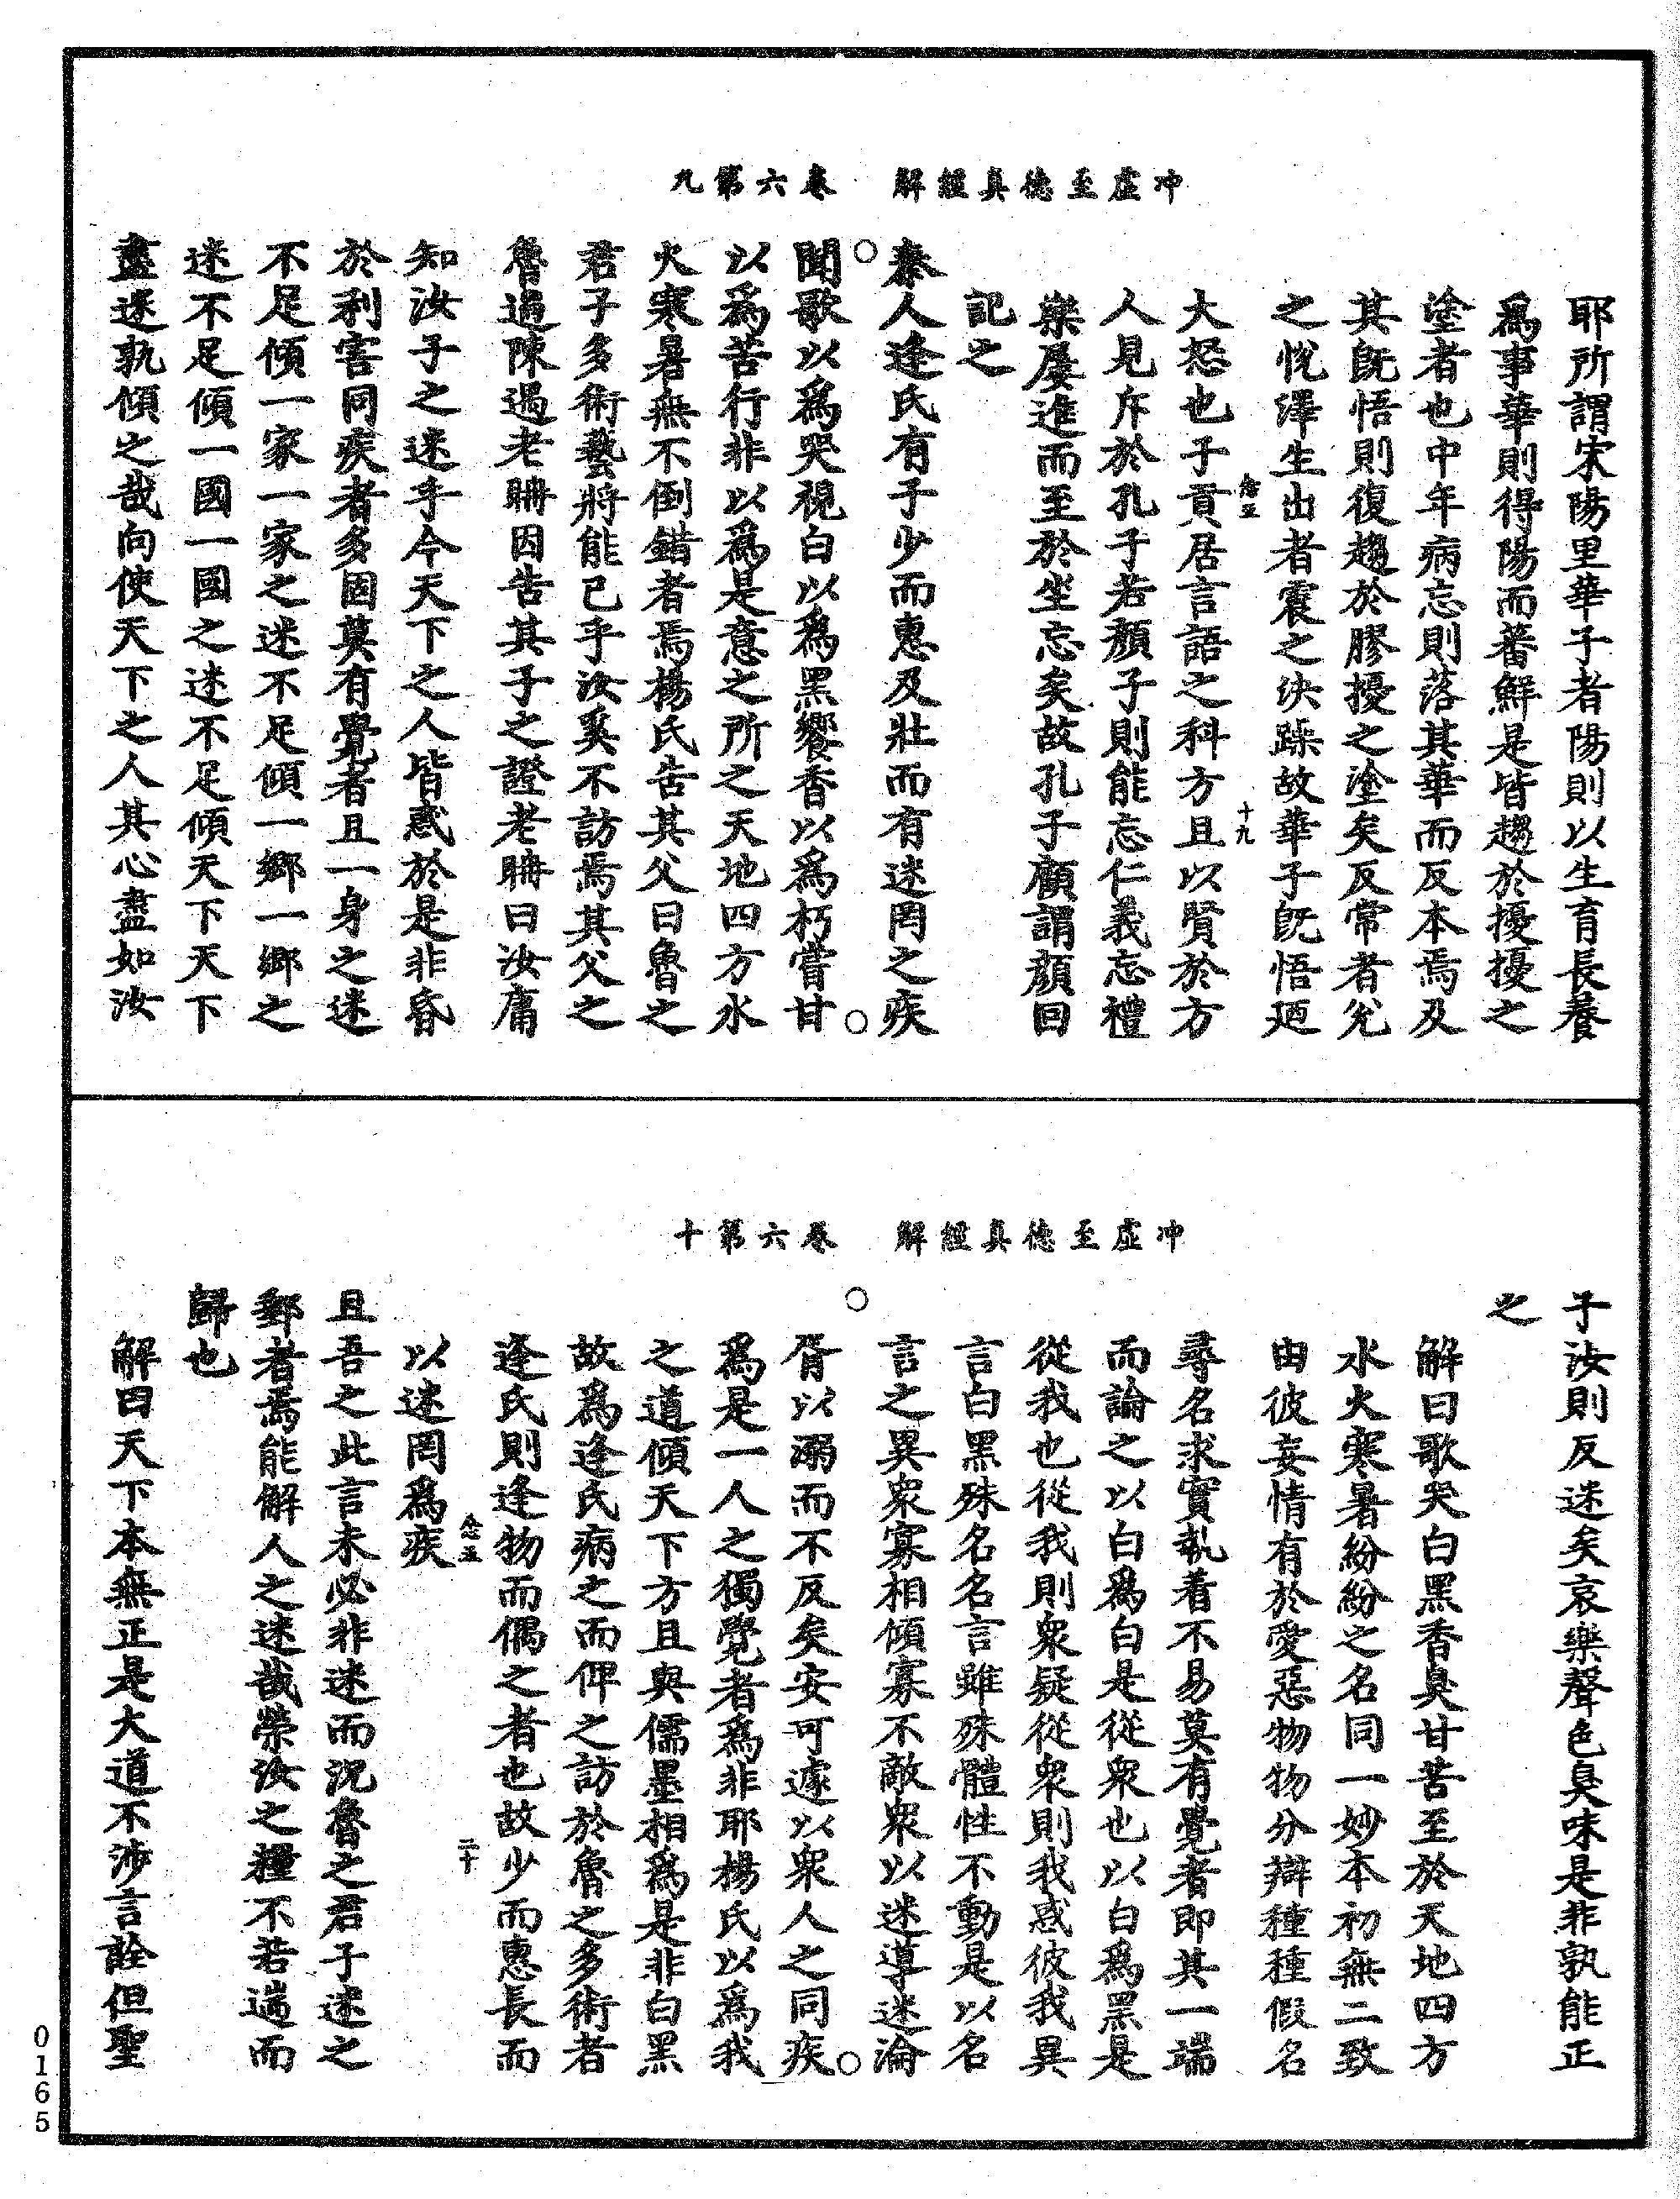 冲虛至德真經解　卷六第九
耶所謂宋陽里華子者陽則以生育長養
爲事華則得陽而蕃鮮是皆趨於擾擾之
塗者也中年病忘則落其華而反本焉及
其旣悟則復趨於膠擾之塗矣反常者兊
之悅澤生出者震之決躁故華子旣悟廼
念五　十九
大怒也子貢居言語之科方且以賢於方
人見斥於孔子若顏子則能忘仁義忘禮
樂屢進而至於坐忘矣故孔子顧謂顏回
記之
秦人逢氏有子少而惠及壯而有迷罔之疾
聞歌以爲哭視白以爲黑饗香以爲朽嘗甘
以爲苦行非以爲是意之所之天地四方水
火寒暑無不倒錯者焉楊氏告其父曰魯之
君子多術藝將能已乎汝奚不訪焉其父之
魯過陳遇老聃因告其子之證老聃曰汝庸
知汝子之迷乎今天下之人皆惑於是非昏
於利害同疾者多固莫有覺者且一身之迷
不足傾一家一家之迷不足傾一鄉一鄉之
迷不足傾一國一國之迷不足傾天下天下
盡迷孰傾之哉向使天下之人其心盡如汝
冲虛至德真經解　卷六第十
子汝則反迷矣哀樂聲色臭味是非孰能正
之
解曰歌哭白黑香臭甘苦至於天地四方
水火寒暑紛紛之名同一妙本初無二致
由彼妄情有於愛惡物物分辯種種假名
尋名求實執着不易莫有覺者即其一端
而論之以白爲白是從衆也以白爲黑是
從我也從我則衆疑從衆則我惑彼我異
言白黑殊名名言雖殊體性不動是以名
言之異衆寡相傾寡不敵衆以迷導迷淪
胥以溺而不反矣安可遽以衆人之同疾
爲是一人之獨覺者爲非耶楊氏以爲我
之道傾天下方且與儒墨相爲是非白黑
故爲逢氏病之而俾之訪於魯之多術者
逢氏則逢物而偶之者也故少而惠長而
念五　二十
以迷罔爲疾
且吾之此言未必非迷而況魯之君子迷之
郵者焉能解人之迷哉榮汝之糧不若遄而
歸也
解曰天下本無正是大道不涉言詮但聖
0165